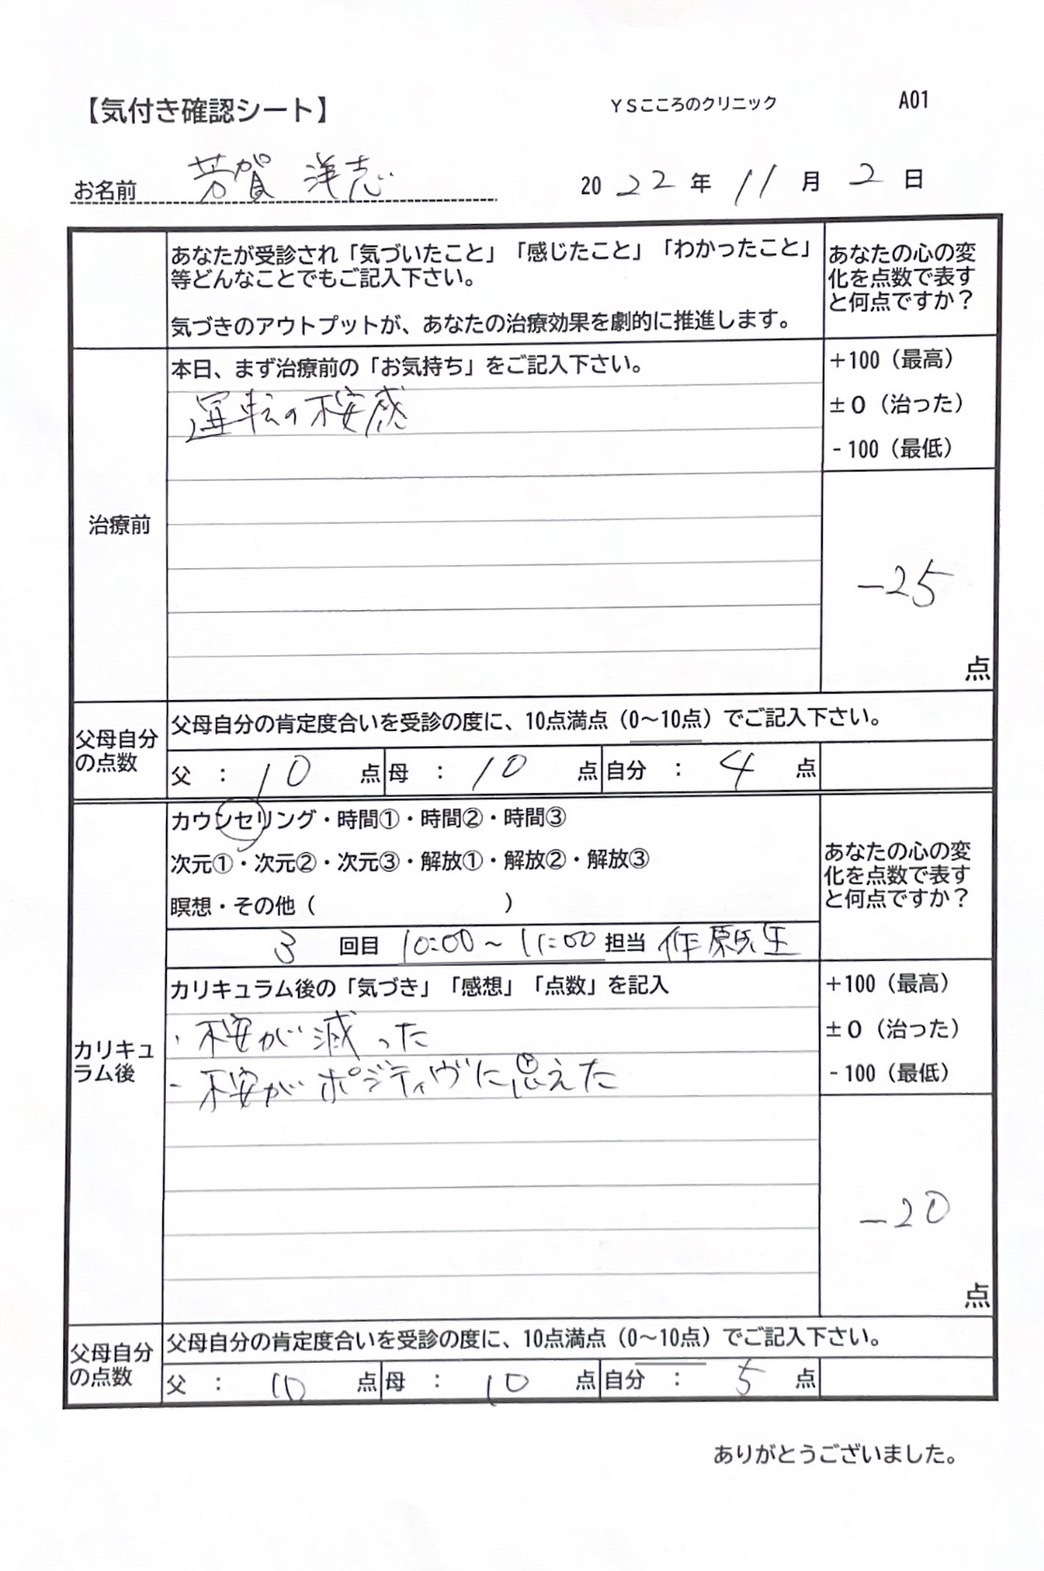 【気付き確認シート】 YSこころのクリニック A01
お名前 芳賀 洋志 2022年 11月 2日
あなたが受診され「気づいたこと」「感じたこと」「わかったこと」
等どんなことでもご記入下さい。
気づきのアウトプットが、あなたの治療効果を劇的に推進します。
あなたの心の変
化を点数で表す
と何点ですか？
治療前
本日、まず治療前の「お気持ち」をご記入下さい。
運転の不安感
+100（最高）
±0（治った）
-100（最低）
-25
点
父母自分
の点数
父母自分の肯定度合いを受診の度に、10点満点（0～10点）でご記入下さい。
父 ： 10 点 母 ： 10 点 自分 ： 4 点
カリキュ
ラム後
カウンセリング・時間①・時間②・時間③
次元①・次元②・次元③・解放①・解放②・解放③
瞑想・その他（ ）
3 回目 10:00～11:00 担当 作原先生
あなたの心の変
化を点数で表す
と何点ですか？
カリキュラム後の「気づき」「感想」「点数」を記入
・不安が減った
・不安がポジティヴに思えた
+100（最高）
±0（治った）
-100（最低）
-20
点
父母自分
の点数
父母自分の肯定度合いを受診の度に、10点満点（0～10点）でご記入下さい。
父 ： 10 点 母 ： 10 点 自分 ： 5 点
ありがとうございました。